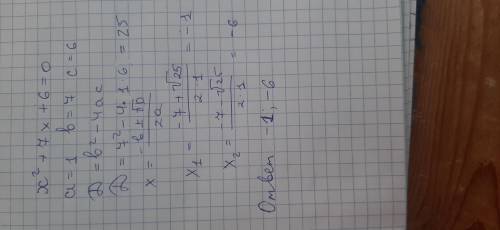 x² + 7x + 6 = 0
a = 1 b = 7 c = 6
D = b² - 4ac
D = 7² - 4 · 1 · 6 = 25
x = (-b ± √D) / 2a
x₁ = (-7 + √25) / 2·1 = -1
x₂ = (-7 - √25) / 2·1 = -6
Ответ -1; -6